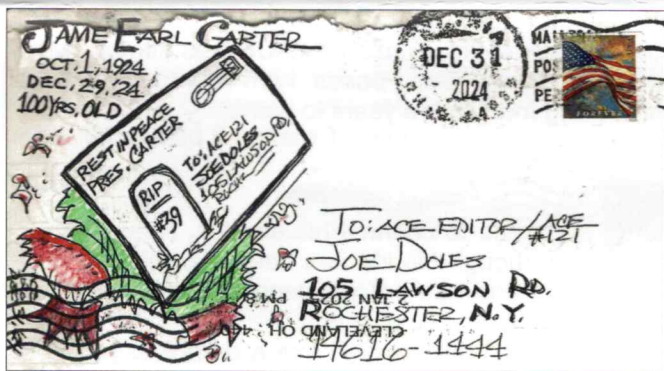 JAME EARL CARTER
OCT. 1, 1924
DEC. 29, '24
100 YRS. OLD
REST IN PEACE
PRES. CARTER
TO: ACE 121
JOE DOLES
105 LAWSON RD,
ROCHE
RIP
#39
DEC 31
2024
FOREVER
TO: ACE EDITOR/ACE
#121
JOE DOLES
105 LAWSON RD.
ROCHESTER, N.Y.
14616-1444
CLEVELAND OH 440
2 JAN 2025 PM 8